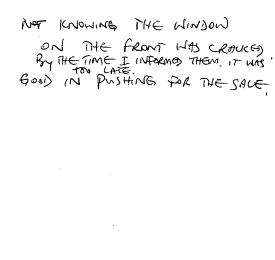 NOT KNOWING THE WINDOW
ON THE FRONT WAS CRACKED
BY THE TIME I INFORMED THEM. IT WAS
TOO LATE.
GOOD IN PUSHING FOR THE SALE.